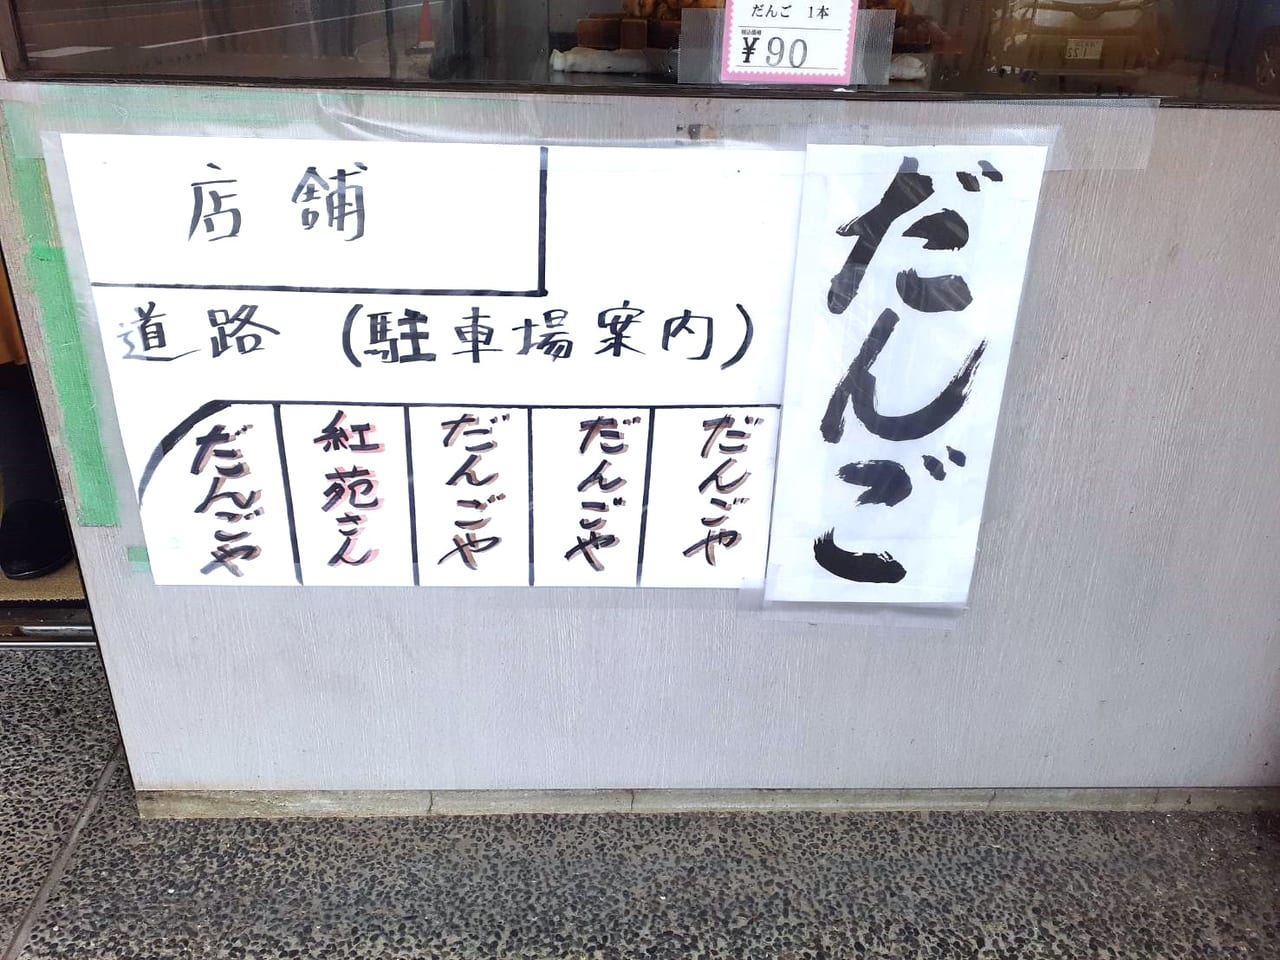 だんご 1本
税込価格
¥90
店舗
道路 (駐車場案内)
だんごや
紅苑さん
だんごや
だんごや
だんごや
だんご